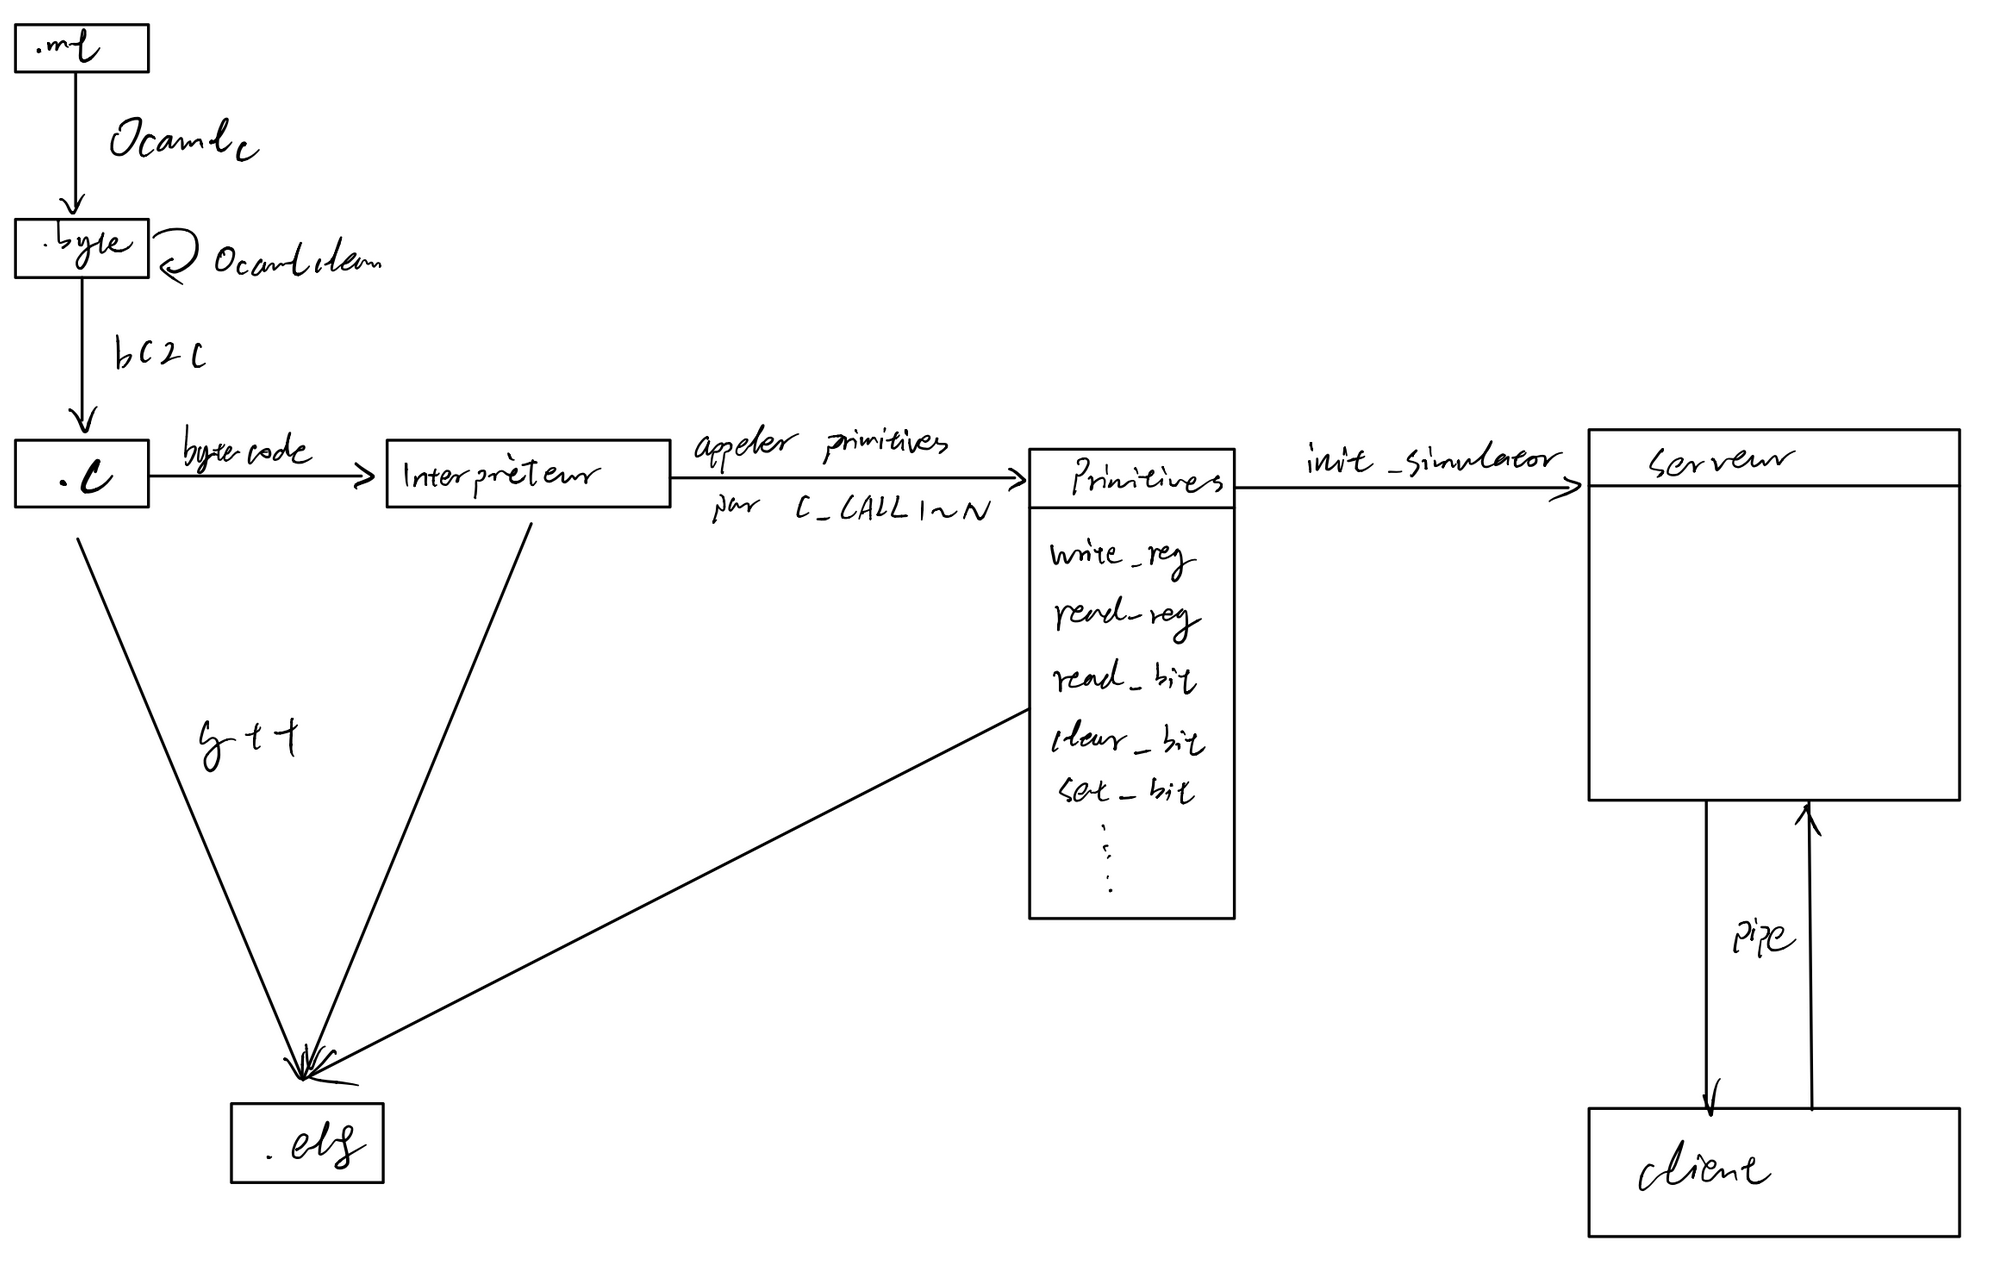 .ml
Ocamlc
.byte
Ocamlclean
bc2c
.c
bytecode
Interprèteur
appeler primitives
par C_CALL1~N
Primitives
write_reg
read_reg
read_bit
clear_bit
set_bit
init_simulator
serveur
g++
pipe
.elf
client